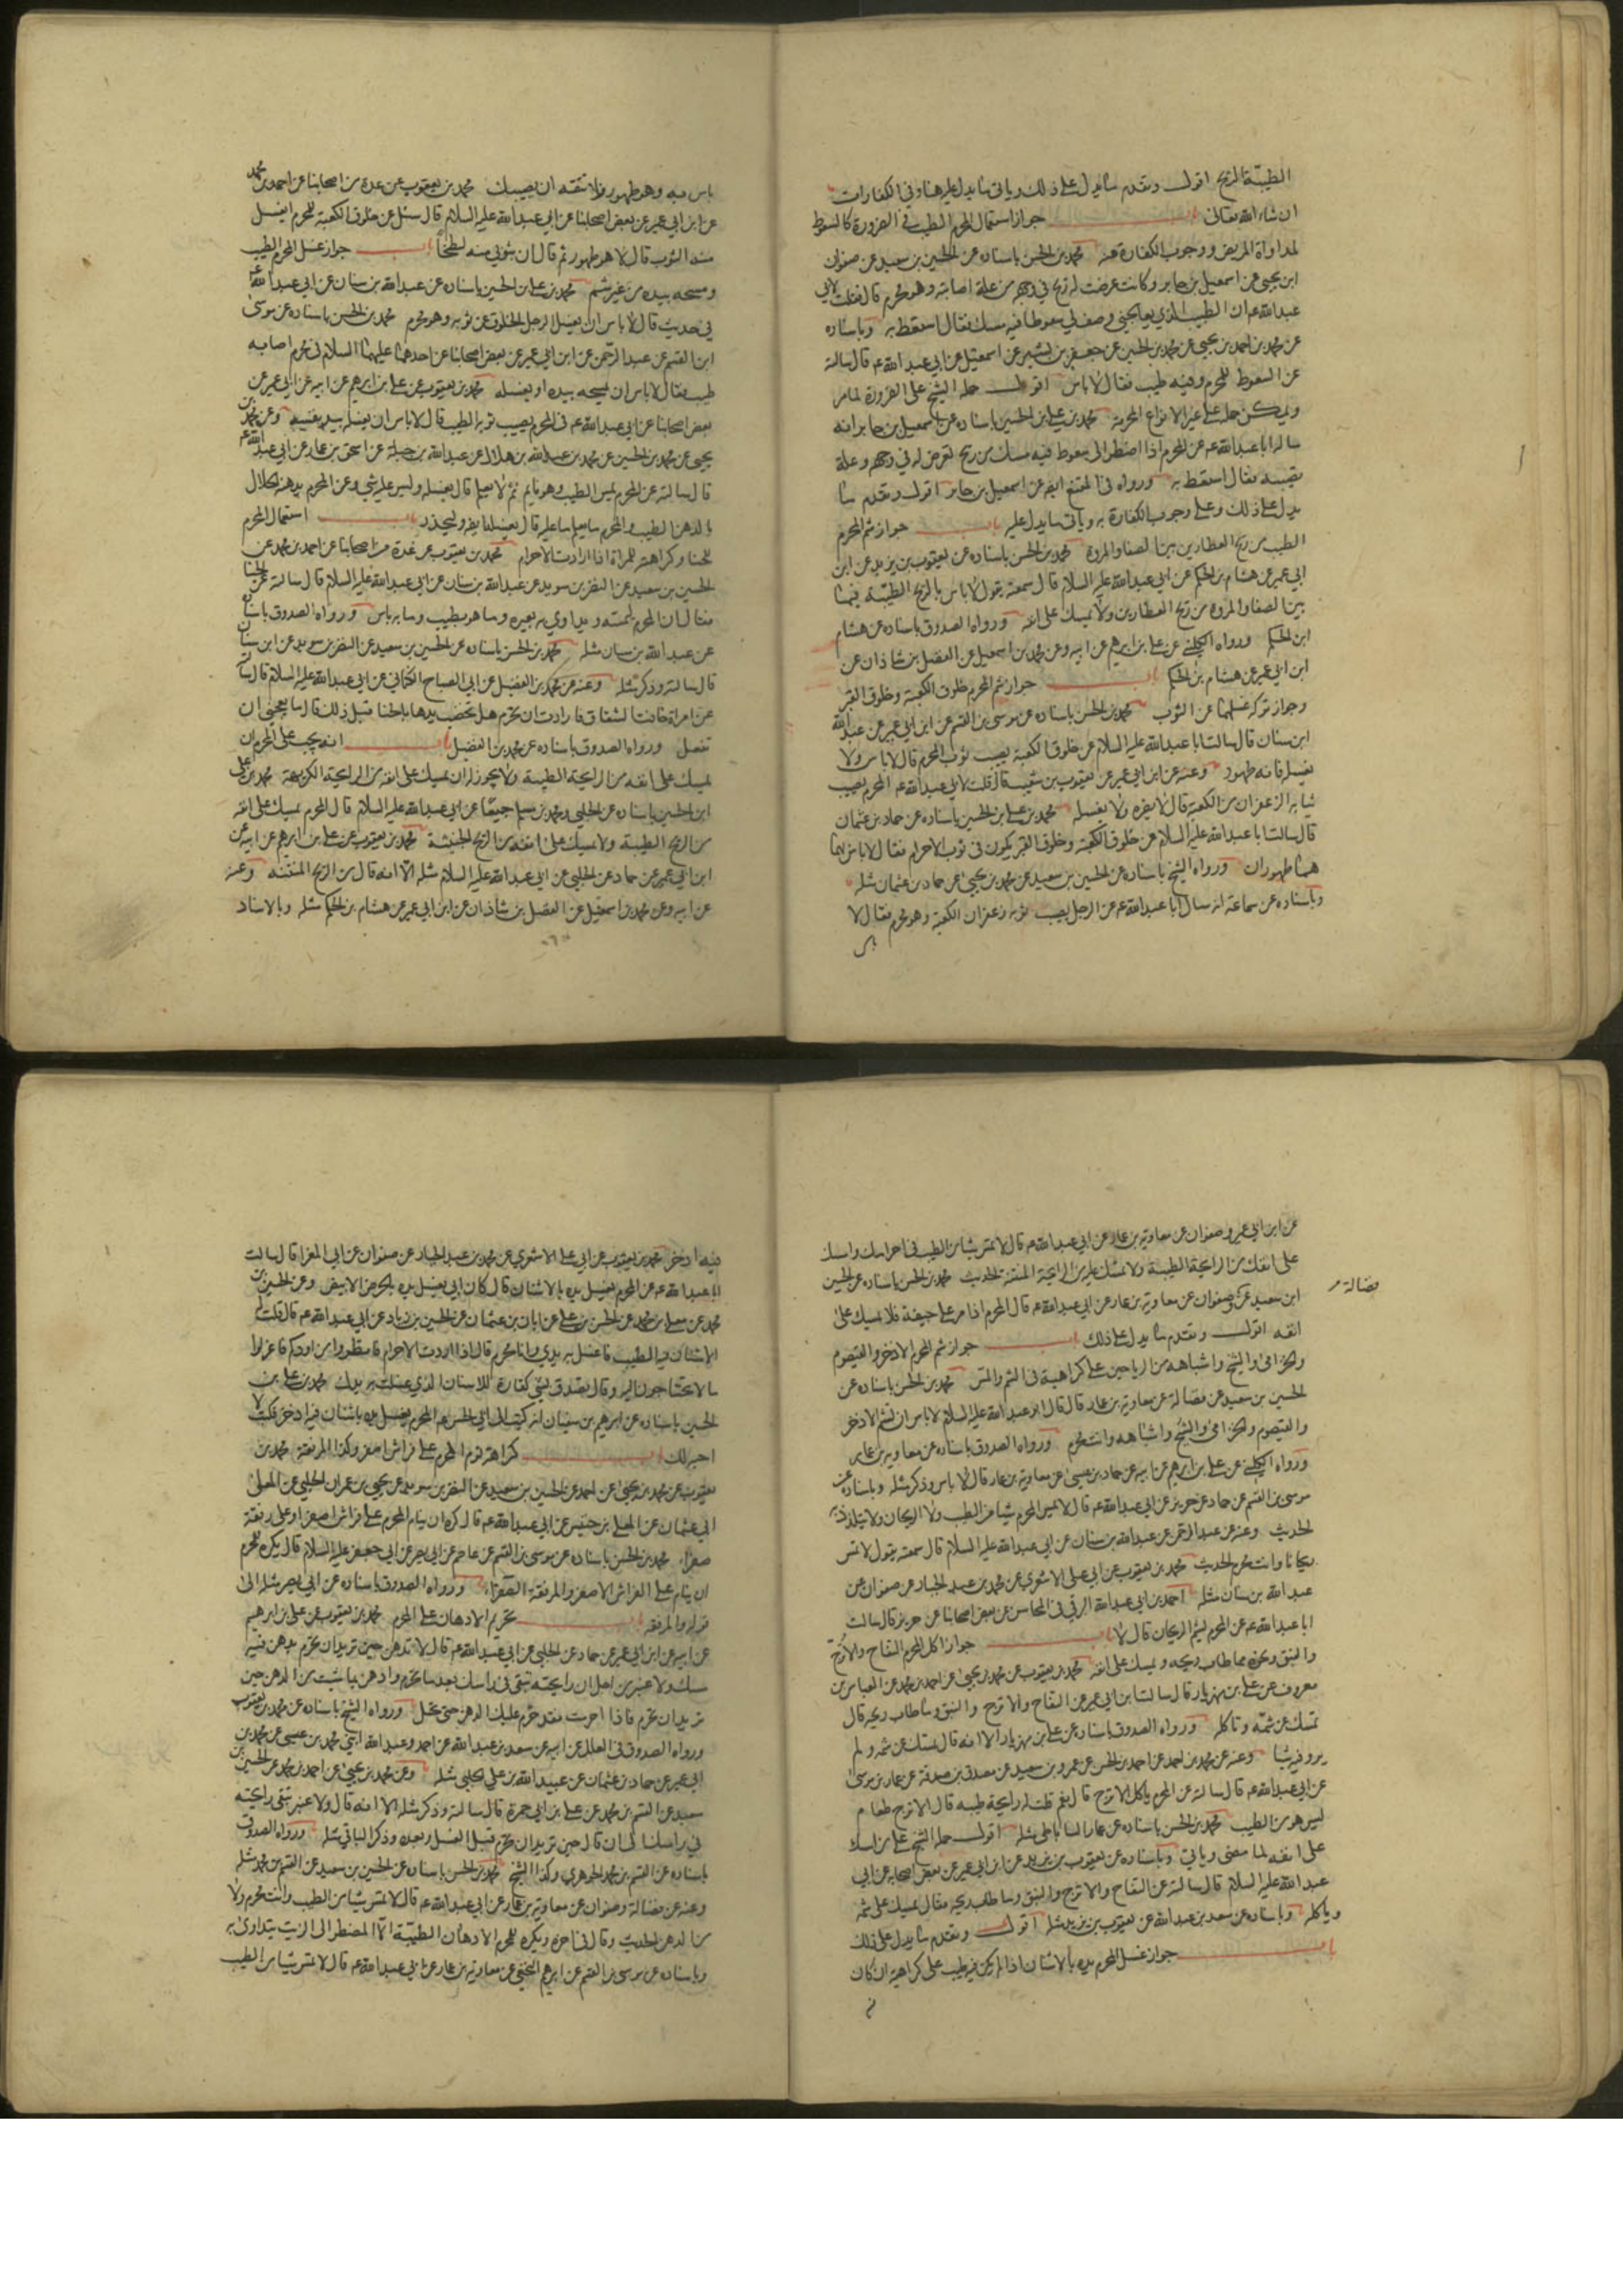 الطيبة الريح اقول وتقدم ما يدل على ذلك وياتي ما يدل عليه هنا وفي الكفارات
ان شاء الله تعالى باب جواز استعمال المحرم الطيب في الضرورة كالسعوط
لمداواة المريض ووجوب الكفارة فيه محمد بن الحسن باسناده عن الحسين بن سعيد عن صفوان
ابن يحيى عن اسمعيل بن جابر وكانت عرضت له ريح في وجهه من علة اصابته وهو محرم قال فقلت لابي
عبد الله عم ان الطبيب الذي يعالجني وصف لي سعوطا فيه مسك فقال استعط به وباسناده
عن محمد بن احمد بن يحيى عن محمد بن الحسين عن جعفر بن بشير عن اسمعيل عن ابي عبد الله عم قال سالته
عن السعوط للمحرم وفيه طيب فقال لا باس اقول حمله الشيخ على الضرورة لما مر
ويمكن حمله على غير الانواع المحرمة محمد بن علي بن الحسين باسناده عن اسمعيل بن جابر انه
سال ابا عبد الله عم عن المحرم اذا اضطر الى سعوط فيه مسك من ريح تعرض له في وجهه وعلة
تصيبه فقال استعط به ورواه في المقنع ايضا عن اسمعيل بن جابر اقول وتقدم ما
يدل على ذلك وعلى وجوب الكفارة به وياتي ما يدل عليه باب جواز شم المحرم
الطيب من ريح العطارين بين الصفا والمروة محمد بن الحسن باسناده عن يعقوب بن يزيد عن ابن
ابي عمير عن هشام بن الحكم عن ابي عبد الله عليه السلام قال سمعته يقول لا باس بالريح الطيبة فيما
بين الصفا والمروة من ريح العطارين ولا يمسك على انفه ورواه الصدوق باسناده عن هشام
ابن الحكم ورواه الكليني عن علي بن ابرهيم عن ابيه وعن محمد بن اسمعيل عن الفضل بن شاذان عن
ابن ابي عمير عن هشام بن الحكم باب جواز شم المحرم خلوق الكعبة وخلوق القبر
وجواز تركه غسلهما عن الثوب محمد بن الحسن باسناده عن موسى بن القسم عن ابن ابي عمير عن عبد الله
ابن سنان قال سالت ابا عبد الله عليه السلام عن خلوق الكعبة يصيب ثوب المحرم قال لا باس ولا
يغسله فانه طهور وعنه عن ابن ابي عمير عن يعقوب بن شعيب قال قلت لابي عبد الله عم المحرم يصيب
ثيابه الزعفران من الكعبة قال لا يضره ولا يغسله محمد بن علي بن الحسين باسناده عن حماد بن عثمان
قال سالت ابا عبد الله عليه السلام عن خلوق الكعبة وخلوق القبر يكون في ثوب الاحرام فقال لا باس بهما
هما طهوران ورواه الشيخ باسناده عن الحسين بن سعيد عن محمد بن يحيى عن حماد بن عثمان مثله
وباسناده عن سماعة انه سال ابا عبد الله عم عن الرجل يصيب ثوبه زعفران الكعبة وهو محرم فقال لا
باس به وهو طهور فلا تتقه ان يصيبك محمد بن يعقوب عن عدة من اصحابنا عن احمد بن محمد
عن ابن ابي عمير عن بعض اصحابنا عن ابي عبد الله عليه السلام قال سئل عن خلوق الكعبة للمحرم ايغسل
منه الثوب قال لا هو طهور ثم قال ان بثوبي منه لطخا باب جواز غسل المحرم الطيب
ومسحه بيده من غير شم محمد بن علي بن الحسين باسناده عن عبد الله بن سنان عن ابي عبد الله عم
في حديث قال لا باس ان يغسل الرجل الخلوق عن ثوبه وهو محرم محمد بن الحسن باسناده عن موسى
ابن القسم عن عبد الرحمن عن ابن ابي عمير عن بعض اصحابنا عن احدهما عليهما السلام في محرم اصابه
طيب فقال لا باس ان يمسحه بيده او يغسله محمد بن يعقوب عن علي بن ابرهيم عن ابيه عن ابن ابي عمير عن
بعض اصحابنا عن ابي عبد الله عم في المحرم يصيب ثوبه الطيب قال لا باس ان يغسله بيد نفسه وعن محمد بن
يحيى عن محمد بن الحسين عن محمد بن عبد الله بن هلال عن عبد الله بن جبلة عن اسحق بن عمار عن ابي عبد الله عم
قال سالته عن المحرم يمس الطيب وهو نايم لا يعلم قال يغسله وليس عليه شي وعن المحرم يدهنه الحلال
بالدهن الطيب والمحرم لا يعلم ما عليه قال يغسله ايضا وليحذر باب استعمال المحرم
للحنا وكراهته للمراة اذا ارادت الاحرام محمد بن يعقوب عن عدة من اصحابنا عن احمد بن محمد عن
الحسين بن سعيد عن النضر بن سويد عن عبد الله بن سنان عن ابي عبد الله عليه السلام قال سالته عن الحنا
فقال ان المحرم ليمسه ويداوي به بعيره وما هو بطيب وما به باس ورواه الصدوق باسناده
عن عبد الله بن سنان مثله محمد بن الحسن باسناده عن الحسين بن سعيد عن النضر بن سويد عن ابن سنان
قال سالته وذكر مثله وعنه عن محمد بن الفضيل عن ابي الصباح الكناني عن ابي عبد الله عليه السلام قال سالته
عن امراة خافت الشقاق فارادت ان تحرم هل تخضب يدها بالحنا قبل ذلك قال ما يعجبني ان
تفعل ورواه الصدوق باسناده عن محمد بن الفضيل باب انه يجب على المحرم ان
يمسك على انفه من الرايحة الطيبة ولا يجوز له ان يمسك على انفه من الرايحة الكريهة محمد بن علي
ابن الحسين باسناده عن الحلبي ومحمد بن مسلم جميعا عن ابي عبد الله عليه السلام قال المحرم يمسك على انفه
من الريح الطيبة ولا يمسك على انفه من الريح الخبيثة محمد بن يعقوب عن علي بن ابرهيم عن ابيه عن
ابن ابي عمير عن حماد عن الحلبي عن ابي عبد الله عليه السلام مثله الا انه قال من الريح المنتنة وعنه
عن ابيه وعن محمد بن اسمعيل عن الفضل بن شاذان عن ابن ابي عمير عن هشام بن الحكم مثله وبالاسناد
عن ابن ابي عمير وصفوان عن معاوية بن عمار عن ابي عبد الله عم قال لا تمس شيئا من الطيب في احرامك وامسك
على انفك من الرايحة الطيبة ولا تمسك عليه من الرايحة المنتنة الحديث محمد بن الحسن باسناده عن الحسين
فضالة
ابن سعيد عن وصفوان عن معاوية بن عمار عن ابي عبد الله عم قال المحرم اذا مر على جيفة فلا يمسك على
انفه اقول وتقدم ما يدل على ذلك باب جواز شم المحرم الاذخر والقيصوم
والخزامى والشيح واشباهه من الرياحين على كراهية في الشم والمس محمد بن الحسن باسناده عن
الحسين بن سعيد عن فضالة عن معاوية بن عمار قال قال ابو عبد الله عليه السلام لا باس ان تشم الاذخر
والقيصوم والخزامى والشيح واشباهه وانت محرم ورواه الصدوق باسناده عن معاوية بن عمار
ورواه الكليني عن علي بن ابرهيم عن ابيه عن حماد بن عيسى عن معاوية بن عمار قال لا باس وذكر مثله وباسناده عن
موسى بن القسم عن حماد عن حريز عن ابي عبد الله عم قال لا يمس المحرم شيئا من الطيب ولا الريحان ولا يتلذذ به
الحديث وعنه عن عبد الرحمن عن عبد الله بن سنان عن ابي عبد الله عليه السلام قال سمعته يقول لا تمس
ريحانا وانت محرم الحديث محمد بن يعقوب عن ابي علي الاشعري عن محمد بن عبد الجبار عن صفوان عن
عبد الله بن سنان مثله احمد بن ابي عبد الله البرقي في المحاسن عن بعض اصحابنا عن حريز قال سالت
ابا عبد الله عم عن المحرم يشم الريحان قال لا باب جواز اكل المحرم التفاح والاترج
والنبق ونحوه مما طاب ريحه ويمسك على انفه محمد بن يعقوب عن محمد بن يحيى عن احمد بن محمد عن العباس بن
معروف عن علي بن مهزيار قال سالت ابن ابي عمير عن التفاح والاترج والنبق وما طاب ريحه قال
تمسك عن شمه وتاكله ورواه الصدوق باسناده عن علي بن مهزيار الا انه قال تمسك عن شمه ولم
يرو فيه شيئا وعنه عن محمد بن احمد عن احمد بن الحسن عن عمرو بن سعيد عن مصدق بن صدقة عن عمار بن موسى
عن ابي عبد الله عم قال سالته عن المحرم ياكل الاترج قال نعم قلت له رايحة طيبة قال الاترج طعام
ليس هو من الطيب محمد بن الحسن باسناده عن عمار الساباطي مثله اقول حمله الشيخ على من امسك
على انفه لما مضى وياتي وباسناده عن يعقوب بن يزيد عن ابن ابي عمير عن بعض اصحابه عن ابي
عبد الله عليه السلام قال سالته عن التفاح والاترج والنبق وما طاب ريحه فقال يمسك على شمه
وياكله وباسناده عن سعد بن عبد الله عن يعقوب بن يزيد مثله اقول وتقدم ما يدل على ذلك
باب جواز غسل المحرم يده بالاشنان اذا لم يكن فيه طيب على كراهية ان كان
فيه اذخر محمد بن يعقوب عن ابي علي الاشعري عن محمد بن عبد الجبار عن صفوان عن ابي المغرا قال سالت
ابا عبد الله عم عن المحرم يغسل يده بالاشنان قال كان ابي يغسل يده بالحرض الابيض وعن الحسين بن
محمد عن معلى بن محمد عن الحسن بن علي عن ابان بن عثمان عن الحسين بن زياد عن ابي عبد الله عم قال قلت له
الاشنان فيه الطيب فاغسل به يدي وانا محرم قال اذا اردتم الاحرام فانظروا مزاودكم فاعزلوا
ما لا تحتاجون اليه وقال تصدق بشي كفارة للاشنان الذي غسلت به يدك محمد بن علي بن
الحسين باسناده عن ابرهيم بن سفيان انه كتب الى ابي الحسن عم المحرم يغسل يده باشنان فيه اذخر فكتب لا
احبه لك باب كراهة نوم المحرم على فراش اصفر وكذا المرفقة محمد بن
يعقوب عن محمد بن يحيى عن احمد عن الحسين بن سعيد عن النضر بن سويد عن يحيى بن عمران الحلبي عن المعلى
ابي عثمان عن المعلى بن خنيس عن ابي عبد الله عم قال كره ان ينام المحرم على فراش اصفر او على مرفقة
صفراء محمد بن الحسن باسناده عن موسى بن القسم عن عاصم عن ابي بصير عن ابي جعفر عليه السلام قال يكره للمحرم
ان ينام على الفراش الاصفر والمرفقة الصفراء ورواه الصدوق باسناده عن ابي بصير مثله الى
قوله والمرفقه باب تحريم الادهان على المحرم محمد بن يعقوب عن علي بن ابرهيم
عن ابيه عن ابن ابي عمير عن حماد عن الحلبي عن ابي عبد الله عم قال لا تدهن حين تريد ان تحرم بدهن فيه
مسك ولا عنبر من اجل ان رايحته تبقى في راسك بعد ما تحرم وادهن بما شئت من الدهن حين
تريد ان تحرم فاذا احرمت فقد حرم عليك الدهن حتى تحل ورواه الشيخ باسناده عن محمد بن يعقوب
ورواه الصدوق في العلل عن ابيه عن سعد بن عبد الله عن احمد وعبد الله ابني محمد بن عيسى عن محمد بن
ابي عمير عن حماد بن عثمان عن عبيد الله بن علي الحلبي مثله وعن محمد بن يحيى عن احمد بن محمد عن الحسين بن
سعيد عن القسم بن محمد عن علي بن ابي حمزة قال سالته وذكر مثله الا انه قال ولا عنبر تبقى رايحته
في راسك الى ان قال حين تريد ان تحرم قبل الغسل وبعده وذكر الباقي مثله ورواه الصدوق
باسناده عن القسم بن محمد الجوهري وكذا الشيخ محمد بن الحسن باسناده عن الحسين بن سعيد عن القسم بن محمد مثله
وعنه عن فضالة وصفوان عن معاوية بن عمار عن ابي عبد الله عم قال لا تمس شيئا من الطيب وانت محرم ولا
من الدهن الحديث وقال في اخره ويكره للمحرم الادهان الطيبة الا المضطر الى الزيت يتداوى به
وباسناده عن موسى بن القسم عن ابرهيم النخعي عن معاوية بن عمار عن ابي عبد الله عم قال لا تمس شيئا من الطيب